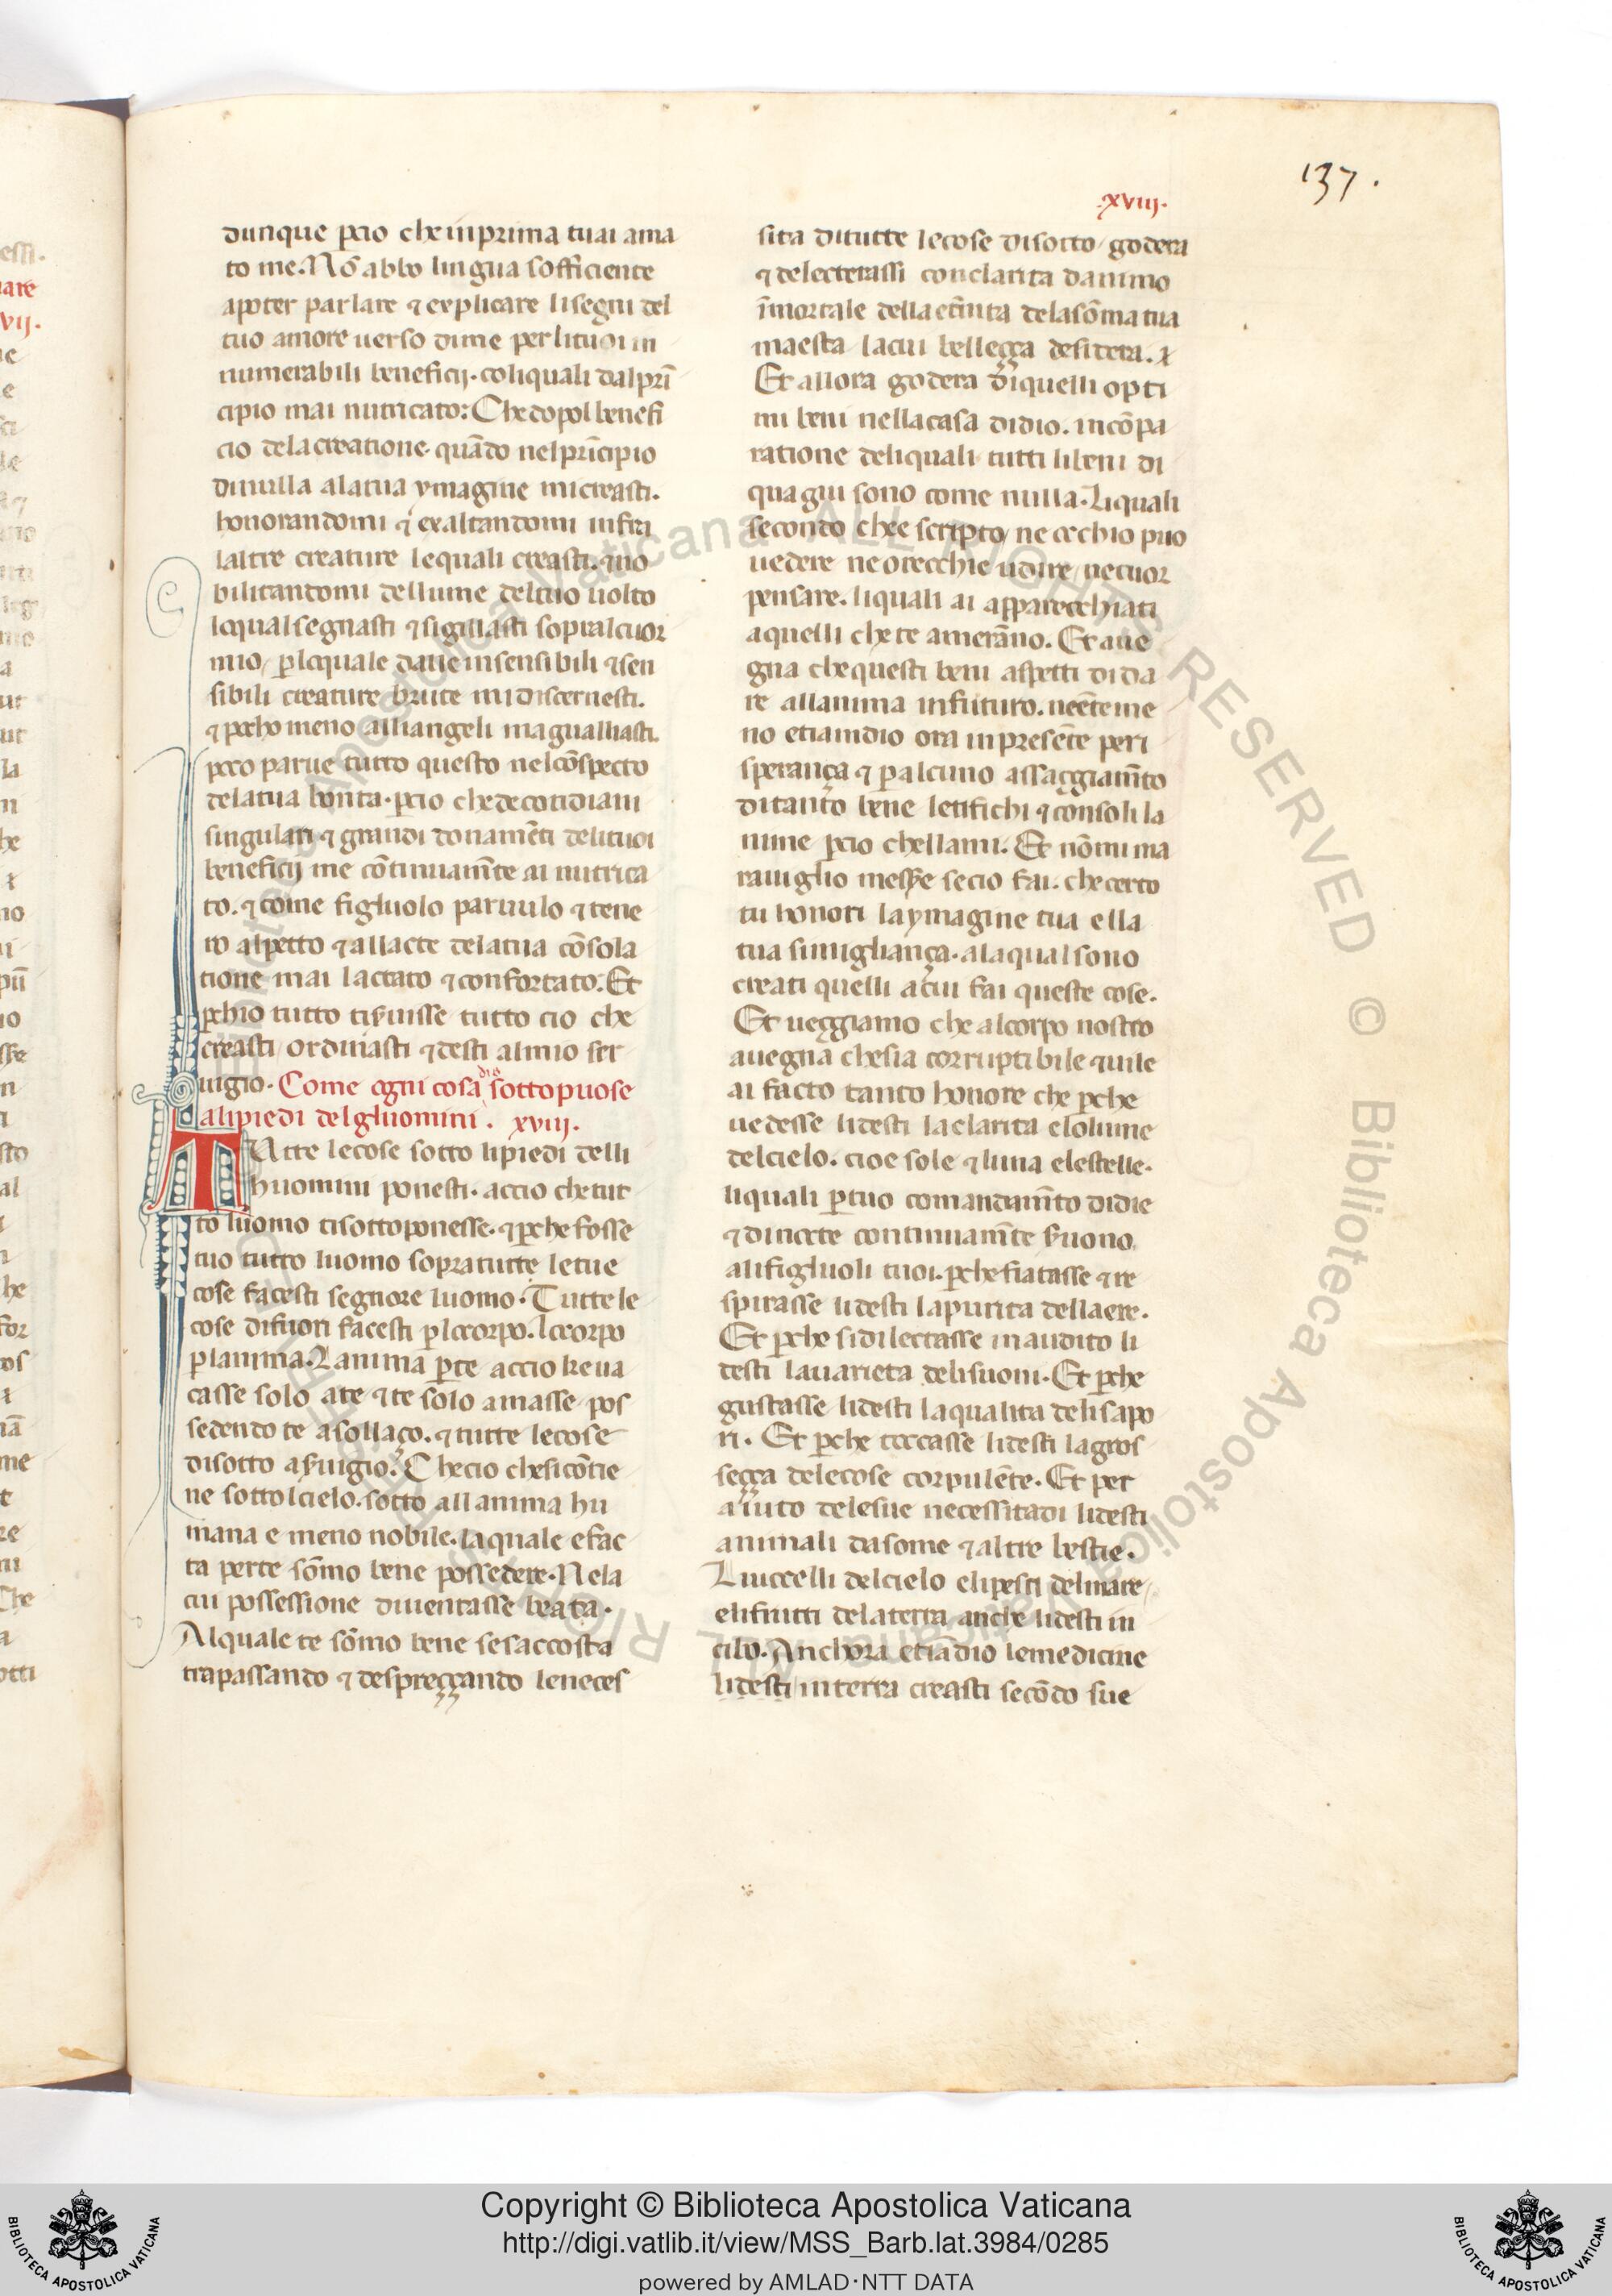 137.
.xviij.
dunque p̱cio che inprima tu ai ama
to me. Nō abbo lingua sofficiente
apoter parlare ⁊ explicare li segni del
tuo amore verso dime per li tuoi in
numerabili beneficij. co liquali dal prī
cipio mai nutricato: Che dopol benefi
cio dela creatione. quādo nel prīcipio
di nulla ala tua ymagine mi creasti.
honorandomi ⁊ exaltandomi infra
laltre creature lequali creasti. ⁊ no
bilitandomi del lume del tuo uolto
loqual segnasti ⁊ sigillasti sopral cuor
mio, p̱ loquale da ue insensibili ⁊ sen
sibili creature brute mi discernesti.
⁊ pocho meno alli angeli magualliasti.
poco parue tutto questo nel cōspecto
dela tua bonta. p̱cio che de cotidiani
singulari ⁊ grandi donamēti deli tuoi
beneficij me cōtinuamēte ai nutrica
to. ⁊ come figluolo paruulo ⁊ tene
ro al petto ⁊ al lacte dela tua cōsola
tione mai lactato ⁊ confortato. Et
p̱chio tutto ti ẜuisse tutto cio che
creasti / ordinasti ⁊ desti al mio ser
uigio. Come ogni cosa dio sottopuose
ali piedi delgluomini. xviij.
Tutte le cose sotto li piedi delli
huomini ponesti. accio che tut
to luomo ti sottoponesse. ⁊ p̱che fosse
tuo tutto luomo sopra tutte le tue
cose facesti segnore luomo. Tutte le
cose difuori facesti p̱ lo corpo. lo corpo
p̱ lanima. Lanima p̱ te accio ke ua
casse solo ate ⁊ te solo amasse pos
sedendo te a sollaço. ⁊ tutte le cose
disotto a ẜuigio. Che cio che si cōtie
ne sottol cielo. sotto allanima hu
mana e meno nobile. laquale e fac
ta per te sōmo bene possedere. Ne la
cui possessione diuentasse beata.
Al quale te sōmo bene se saccosta
trapassando ⁊ despreççando le neces
sita di tutte le cose disotto / godera
⁊ delecterassi con clarita danimo
īmortale della et̄nita dela sōma tua
maesta la cui belleçça desidera.
Et allora godera di quelli opti
mi beni nella casa didio. in cōpa
ratione deli quali tutti li beni di
qua giu sono come nulla. Li quali
secondo che e scripto, ne occhio puo
uedere ne orecchie udire / ne cuor
pensare. li quali ai apparecchiati
aquelli che te amerāno. Et aue
gna che questi beni aspetti di da
re allanima in futuro. neēte me
no etiamdio ora in presēte per i
sperança ⁊ p̱ alcuno assaggiamēto
di tanto bene letifichi ⁊ consoli la
nime p̱cio che llami. Et nō mi ma
rauiglio messere se cio fai. che certo
tu honori la ymagine tua e lla
tua simigliança. ala qual sono
creati quelli acui fai queste cose.
Et ueggiamo che al corpo nostro
auegna che sia corruptibile ⁊ uile
ai facto tanto honore che p̱che
uedesse li desti la clarita e lo lume
del cielo. cioe sole ⁊ luna e le stelle.
li quali p̱ tuo comandamēto di die
⁊ di nocte continuamēte ẜuono
ali figluoli tuoi. p̱che fiatasse ⁊ re
spirasse li desti la purita dell aere.
Et p̱che si dilectasse in audito li
desti la uarieta deli suoni. Et p̱che
gustasse li desti la qualita deli sapo
ri. Et p̱che toccasse li desti la gros
seçça dele cose corpulēte. Et per
aiuto dele sue necessitadi li desti
animali da some ⁊ altre bestie.
Li uccelli del cielo e li pesci del mare /
e li fructi dela terra anche li desti in
cibo. Anchora etiādio le medicine
li desti / in terra creasti secōdo sue
Copyright © Biblioteca Apostolica Vaticana
http://digi.vatlib.it/view/MSS_Barb.lat.3984/0285
powered by AMLAD·NTT DATA